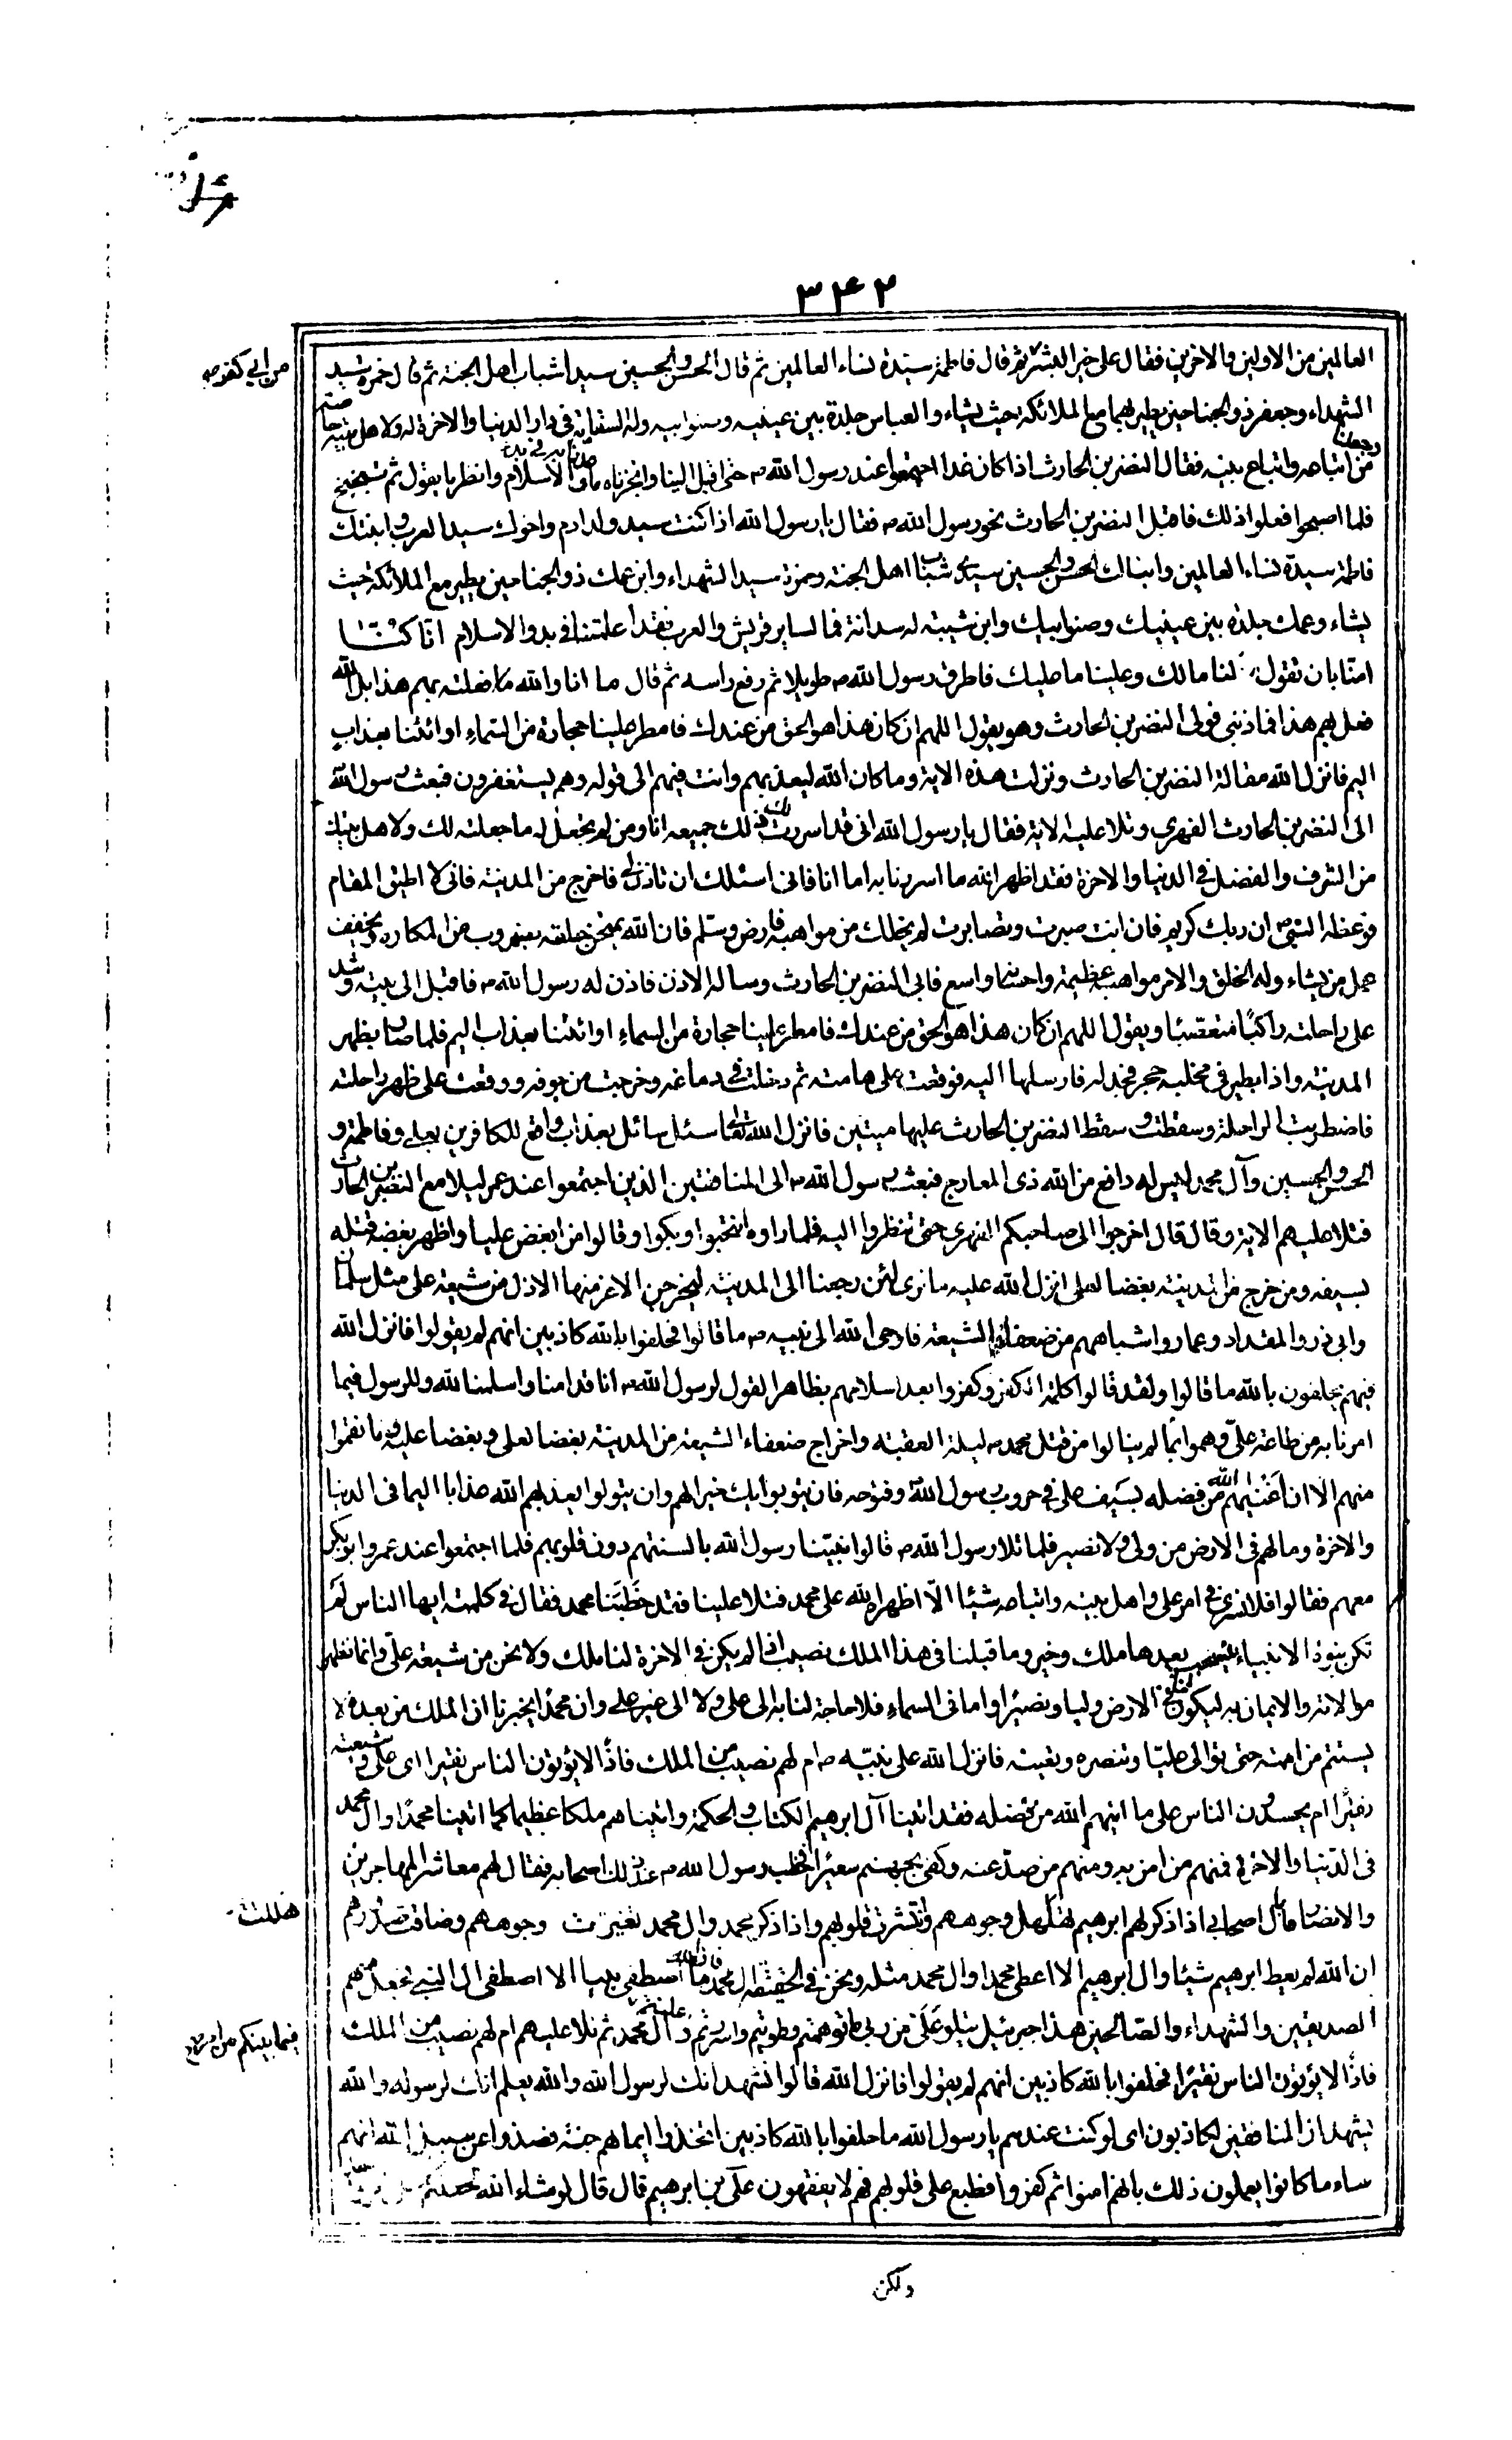 ٣٤٢
العالمين من الاولين والاخرين فقال علي خير البشر ثم قال فاطمة سيدة نساء العالمين ثم قال الحسن والحسين سيدا شباب اهل الجنة ثم قال حمزه سيد
من ابي كفر
الشهداء وجعفر ذو الجناحين يطير بهما مع الملائكة حيث يشاء والعباس جلدة بين عينيه وصنو ابيه وله السقاية في دار الدنيا والاخرة له ولاهل
من اتباعه واتباع بيته فقال النضر بن الحارث اذا كان غدا اجتمعوا عند رسول الله ص حتى اقبل الينا وانظر ما يقول ثم
فلما اصبحوا فعلوا ذلك فاقبل النضر بن الحارث نحو رسول الله ص فقال يا رسول الله اذا كنت سيد ولد ادم واخوك سيد العرب وابنتك
فاطمة سيدة نساء العالمين وابناك الحسن والحسين سيدي شباب اهل الجنة وحمزة سيد الشهداء وابن عمك ذو الجناحين يطير مع الملائكة حيث
يشاء وعمك جلدة بين عينيك وصنو ابيك وابن شيبته له سدانة فما لساير قريش والعرب فقد اعلمتنا في بدو الاسلام انا كنّا
امنّا بان تقول لنا مالك وعلينا ما عليك فاطرق رسول الله ص طويلا ثم رفع راسه ثم قال ما انا والله ما فعلته بهم هذا بل الله
فعل بهم هذا فما ذنبي فولى النضر بن الحارث وهو يقول اللهم ان كان هذا هو الحق من عندك فامطر علينا حجارة من السماء او ائتنا بعذاب
اليم فانزل الله مقالة النضر بن الحارث ونزلت هذه الاية وما كان الله ليعذبهم وانت فيهم الى قوله وهم يستغفرون فبعث رسول الله
الى النضر بن الحارث الفهري وتلا عليه الاية فقال يا رسول الله اني قد اسررت ذلك جميعه انا ومن لم يجعل له ما جعلته لك ولاهل بيتك
من الشرف والفضل في الدنيا والاخرة فقد اظهر الله ما اسررنا به اما انا فاني اسئلك ان تاذن لي فاخرج من المدينة فاني لا اطيق المقام
فوعظه النبي ص ان ربك كريم فان انت صبرت وتصابرت لم يخلك من مواهبه فارض وسلم فان الله يمتحن خلقه بضروب من المكاره ويخفف
عمل من يشاء وله الخلق والامر مواهبه عظيمة واحسانه واسع فابى النضر بن الحارث وساله الاذن فاذن له رسول الله ص فاقبل الى بيته وشد
على راحلته راكبًا متعصّبا ويقول اللهم ان كان هذا هو الحق من عندك فامطر علينا حجارة من السماء او ائتنا بعذاب اليم فلما صار بظهر
المدينة واذا بطير في مخلبه حجر فجدله فارسلها اليه فوقعت على هامته ثم دخلت في دماغه وخرجت من جوفه ووقعت على ظهر راحلته
فاضطربت الراحلة وسقطت وسقط النضر بن الحارث عليها ميتين فانزل الله تعالى سئل سائل بعذاب واقع للكافرين بعلي وفاطمة و
الحسن والحسين وآل محمد ليس له دافع من الله ذي المعارج فبعث رسول الله ص الى المنافقين الذين اجتمعوا عند عمر ليلا مع النضر بن الحارث
فتلا عليهم الاية وقال قال اخرجوا الى صاحبكم الفهري حتى تنظروا اليه فلما راوه انتحبوا وبكوا وقالوا من ابغض عليا واظهر بغضه قتله
بسيفه ومن خرج من المدينة بغضا لعلي انزل الله عليه ما نرى لئن رجعنا الى المدينة ليخرجن الاعز منها الاذل من شيعة علي مثل سلمان
وابي ذر والمقداد وعمار واشباههم من ضعفاء الشيعة فاوحى الله الى نبيه ص ما قالوا فحلفوا بالله كاذبين انهم لم يقولوا فانزل الله
فيهم يحلفون بالله ما قالوا ولقد قالوا كلمة الكفر وكفروا بعد اسلامهم بظاهر القول لرسول الله ص انا قد امنا واسلمنا لله وللرسول فيما
امرنا به من طاعة عليّ وهموا بما لم ينالوا من قتل محمد ص ليلة العقبة واخراج ضعفاء الشيعة من المدينة بغضا لعلي وبغضا عليه وما نقموا
منهم الا ان اغنيهم الله من فضله بسيف علي في حروب رسول الله وفتوحه فان يتوبوا يك خيرا لهم وان يتولوا يعذبهم الله عذابا اليما في الدنيا
والاخرة وما لهم في الارض من ولي ولا نصير فلما تلا رسول الله ص قالوا نبيّنا رسول الله بالسنتهم دون قلوبهم فلما اجتمعوا عند عمر وابو بكر
معهم فقالوا فلا نسر في امر علي واهل بيته واتباعه شيئا الّا اظهره الله على محمد فتلا علينا فقد خطبنا محمد فقال في كلمته ايها الناس لم
تكن نبوة الانبياء بعدها ملك وخير وما قبلنا في هذا الملك نصيب اذا لم يكن في الاخرة لنا ملك ولا نحن من شيعة عليّ وانما نظهر
موالاته والايمان به ليكون في الارض وليا ونصيرا واما في السماء فلا حاجة لنا به الى علي ولا الى غير علي وان محمدًا يخبرنا ان الملك من بعده لا
يستتم من امته حتى يوالى عليّا وتنصره وتعينه فانزل الله على نبيّه ص ام لهم نصيب من الملك فاذًا لا يؤتون الناس نقيرا اي علي وشيعته
نقيرًا ام يحسدون الناس على ما اتيهم الله من فضله فقد اتينا آل ابرهيم الكتاب والحكمة واتيناهم ملكا عظيما كما اتينا محمدًا وال محمد
في الدّنيا والاخرة فمنهم من امن به ومنهم من صدّ عنه وكفى بجهنم سعيرًا فخطب رسول الله ص عند ذلك اصحابه فقال لهم معاشر المهاجرين
والانصار ما بال اصحابي اذا ذكر لهم ابرهيم تهلل وجوههم وانتشرت قلوبهم واذا ذكر محمد وال محمد تغيرت وجوههم وضاقت صدورهم
هللت
ان الله لم يعط ابرهيم شيئا وال ابرهيم الا اعطى محمدا وال محمد مثله ونحن في الحقيقة ال محمد ما اصطفى نبيا الا اصطفى ال النبي فجعل منهم
الصديقين والشهداء والصّالحين هذا جبرئيل يتلو عليّ من ربي ما توهمتم وطويتم واسررتم ثم تلا عليهم ام لهم نصيب من الملك
فيما بينكم من امر
فاذًا لا يؤتون الناس نقيرًا فحلفوا بالله كاذبين انهم لم يقولوا فانزل الله قالوا نشهد انك لرسول الله والله يعلم انك لرسوله والله
يشهد ان المنافقين لكاذبون اي لو كنت عندهم يا رسول الله ما حلفوا بالله كاذبين اتخذوا ايمانهم جنة فصدوا عن سبيل الله انهم
ساء ما كانوا يعملون ذلك بانهم امنوا ثم كفروا فطبع على قلوبهم فهم لا يفقهون علي بن ابرهيم قال قال لو شاء الله
ولكن